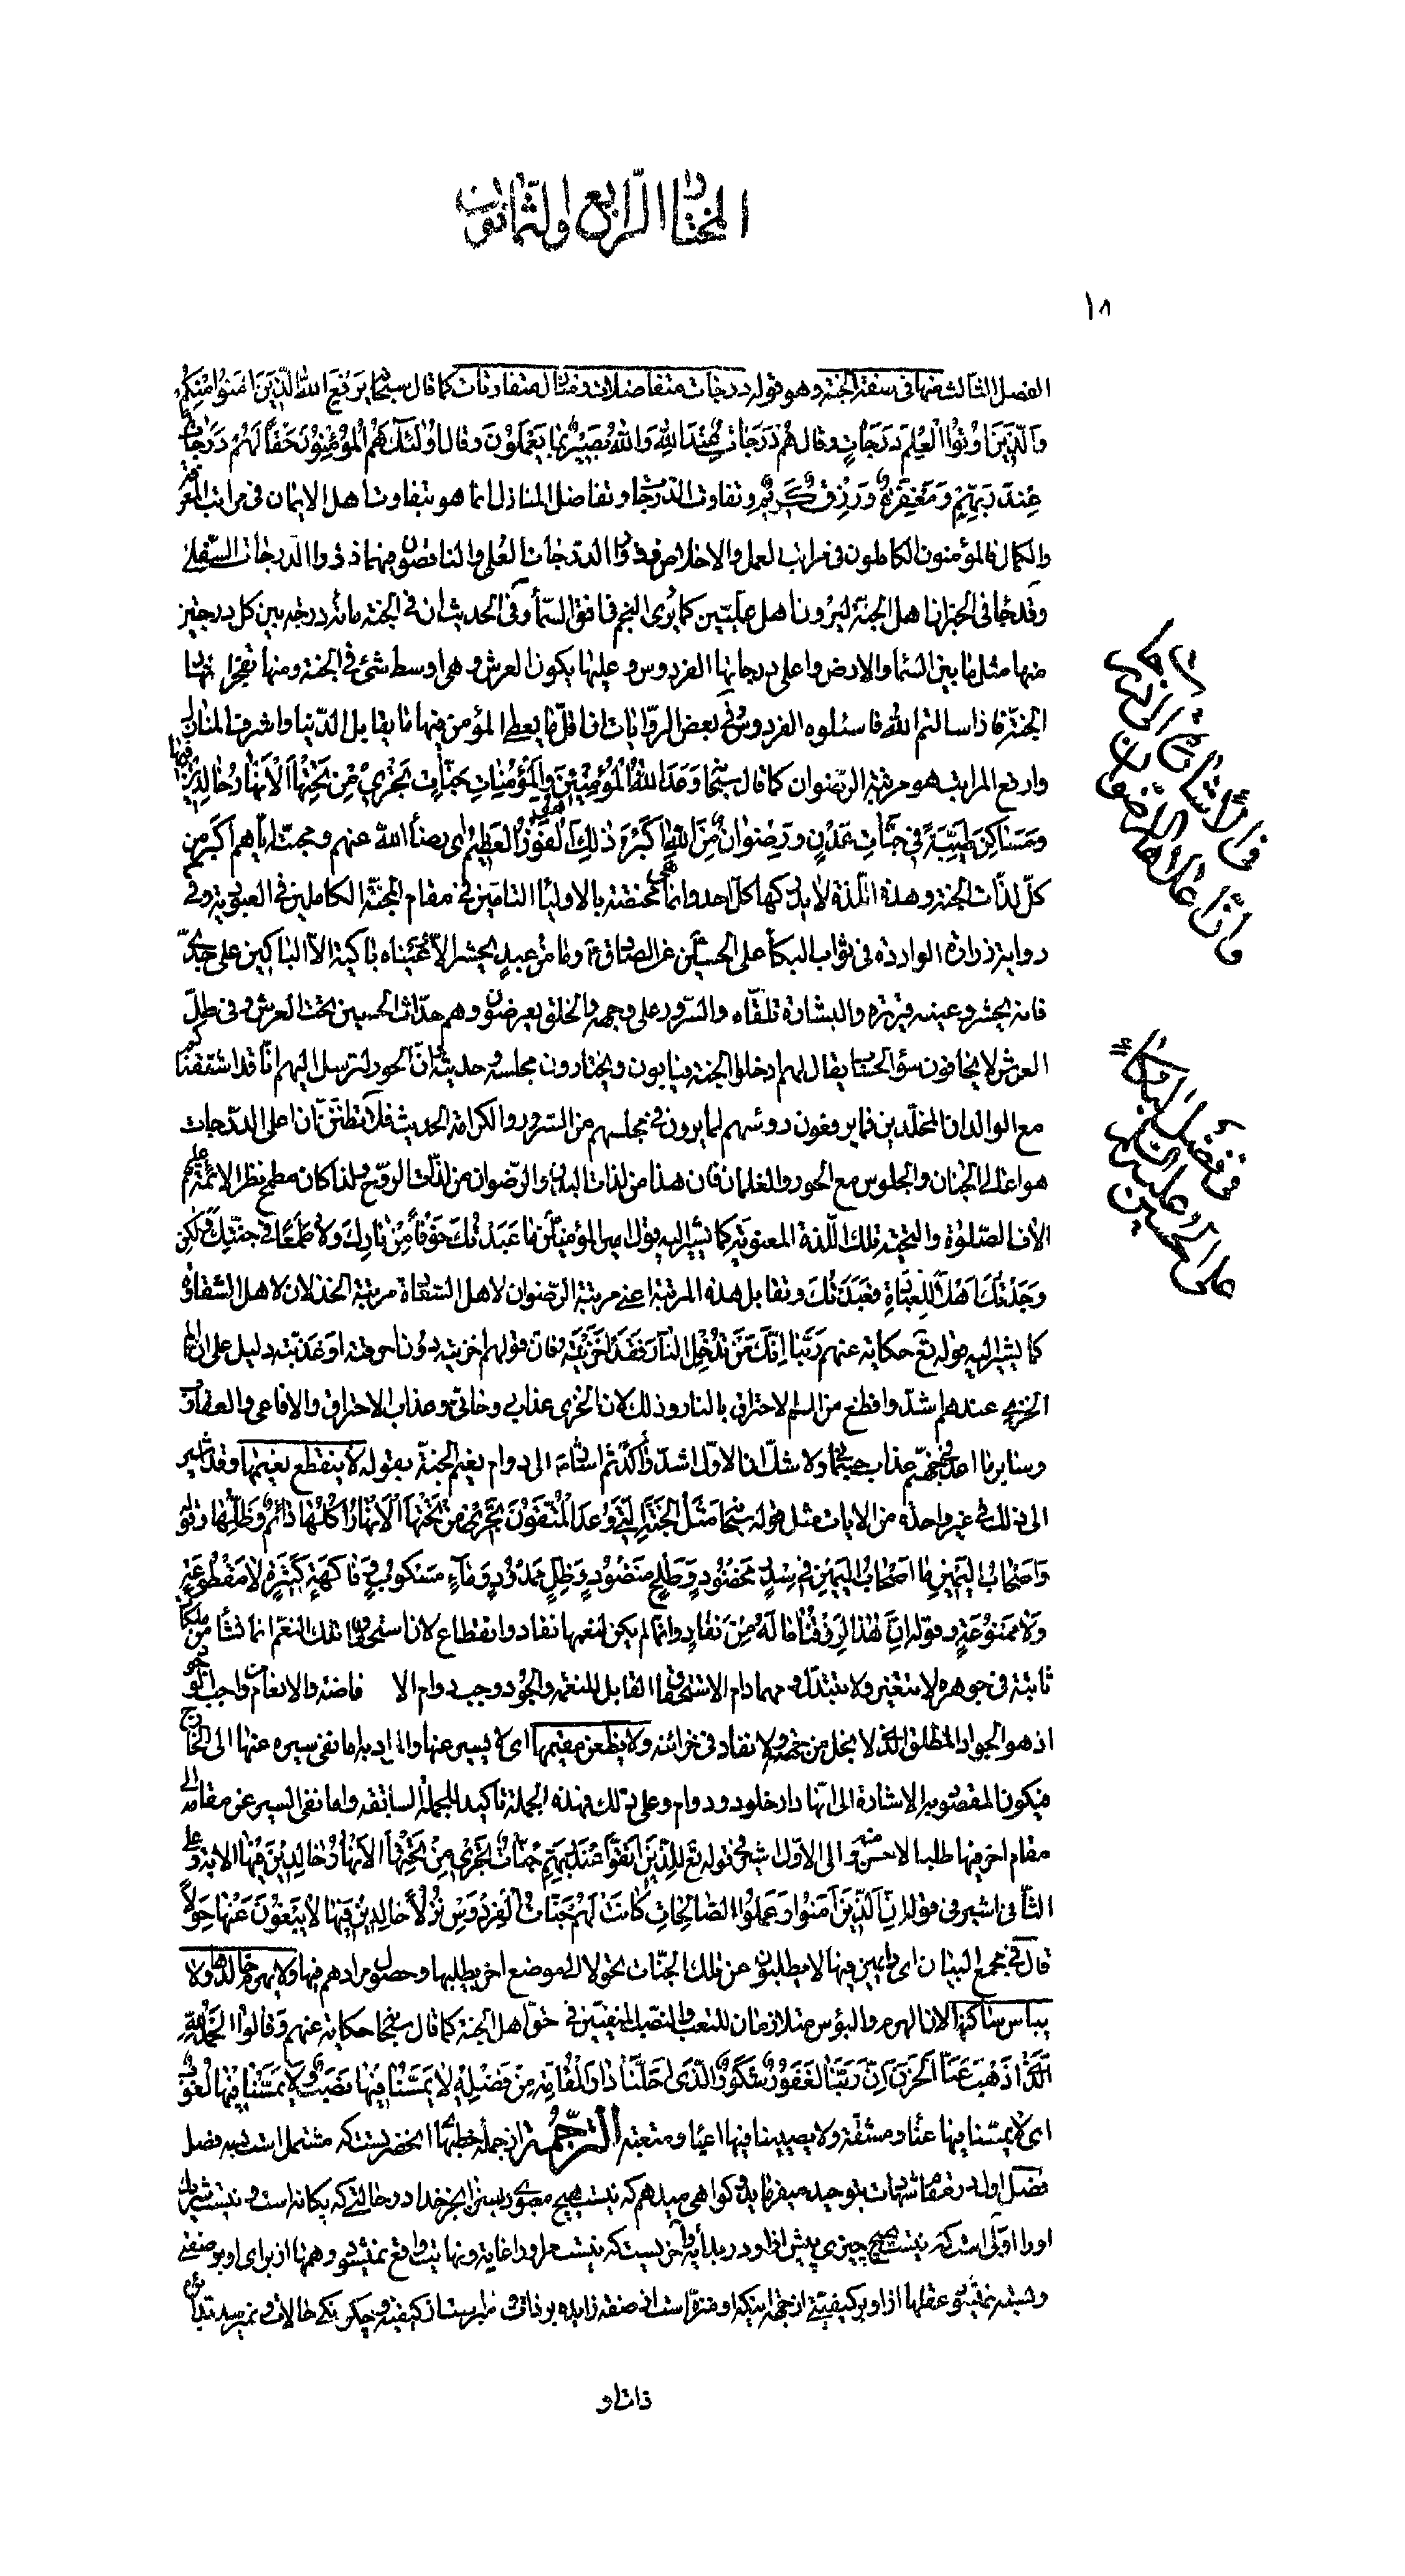 المختار الرابع والثمانون
١٨
الفصل الثالث منها فى صفة الجنة وهو قوله درجات متفاضلات ومنازل متفاوتات كما قال سبحانه يَرْفَعِ اللهُ الَّذينَ امَنُوا مِنْكُمْ
وَالَّذينَ اوُتُوا الْعِلْمَ دَرَجاتٍ وقال هُمْ دَرَجاتٌ عِنْدَ اللهِ وَاللهُ بَصيرٌ بِما يَعْمَلُونَ وقال اوُلئِكَ هُمُ الْمُؤْمِنُونَ حَقًّا لَهُمْ دَرَجاتٌ
عِنْدَ رَبِّهِمْ وَمَغْفِرَةٌ وَرِزْقٌ كَريمٌ وتفاوت الدرجات وتفاضل المنازل انما هو بتفاوت اهل الايمان فى مراتب المعرفة
والكمال فالمؤمنون الكاملون فى مراتب العمل والاخلاص فذووا الدرجات العُلى والناقصون منهما فذووا الدرجات السّفلى
وقد جاء فى الخبر ان اهل الجنة ليرون اهل علّيّين كما يُرى النجم فى افق السّماء وفى الحديث ان فى الجنة مائة درجة بين كل درجتين
منها مثل ما بين السّماء والارض واعلى درجاتها الفردوس وعليها يكون العرش وهى اوسط شئ فى الجنة ومنها تفجّر انهار
الجنّة فاذا سالتم الله فاسئلوه الفردوس وفى بعض الروايات ان اقلّ ما يعطى المؤمن فيها ما يقابل الدّنيا واشرف المنازل
وارفع المراتب هو مرتبة الرضوان كما قال سبحانه وَعَدَ اللهُ الْمُؤْمِنينَ وَالْمُؤْمِناتِ جَنّاتٍ تَجْري مِنْ تَحْتِهَا الْاَنْهارُ خالِدينَ فيها
وَمَساكِنَ طَيِّبَةً في جَنّاتِ عَدْنٍ وَرِضْوانٌ مِنَ اللهِ اَكْبَرُ ذلِكَ هُوَ الْفَوْزُ الْعَظيمُ اى رضاء الله عنهم ومحبّته اياهم اكبر من
كلّ لذّات الجنة وهذه اللّذة لا يدركها كلّ احد وانما هى مختصّة بالاولياء التامّين فى مقام المحبّة الكاملين فى العبوديّة وفى
رواية زرارة الواردة فى ثواب البكاء على الحسين عن الصادق وما من عبد يحشر الاّ وعيناه باكية الاّ الباكين على جدّى
فانه يحشر وعينه قريرة والبشارة تلقّاه والسّرور على وجهه والخلق يعرضون وهم حدّاث الحسين تحت العرش وفى ظلّ
العرش لا يخافون سوء الحساب يقال لهم ادخلوا الجنة فيابون ويختارون مجلسه وحديثه وانّ الحور لترسل اليهم انّا قد اشتقناكم
مع الولدان المخلّدين فما يرفعون رؤسهم لما يرون فى مجلسهم من السّرور والكرامة الحديث فلا تظنّنّ ان اعلى الدّرجات
هو اعالى الجنان والجلوس مع الحور والغلمان فان هذا من لذات البدن والرّضوان من لذّات الرّوح ولذا كان مطمح نظر الائمة عليهم
الاف الصّلوة والتحيّة تلك اللّذة المعنويّة كما يشير اليه قول امير المؤمنين ما عَبَدْتُكَ خَوْفًا مِنْ نارِكَ وَلا طَمَعًا في جَنَّتِكَ وَلكِنْ
وَجَدْتُكَ اَهْلاً لِلْعِبادَةِ فَعَبَدْتُكَ وتقابل هذه المرتبة اعنى مرتبة الرّضوان لاهل السّعادة مرتبة الخذلان لاهل الشقاوة
كما يشير اليه قوله تع حكاية عنهم رَبَّنا اِنَّكَ مَنْ تُدْخِلِ النّارَ فَقَدْ اَخْزَيْتَهُ فان قولهم اخزيته دون احرقته او عذّبته دليل على ان الم
الخزى عندهم اشدّ وافظع من الم الاحتراق بالنار وذلك لان الخزى عذاب روحانى وعذاب الاحتراق والافاعى والعقارب
وساير ما اعدّ فى جهنّم عذاب جسمانى ولا شك ان الاوّل اشدّ وآكد ثم اشار الى دوام نعيم الجنّة بقوله لا ينقطع نعيمها وقد اشير
الى ذلك فى غير واحدة من الايات مثل قوله سبحانه مَثَلُ الْجَنَّةِ الَّتي وُعِدَ الْمُتَّقُونَ تَجْري مِنْ تَحْتِهَا الْاَنْهارُ اُكُلُها دائِمٌ وَظِلُّها وقوله
وَاَصْحابُ الْيَمينِ ما اَصْحابُ الْيَمينِ في سِدْرٍ مَخْضُودٍ وَطَلْحٍ مَنْضُودٍ وَظِلٍّ مَمْدُودٍ وَماءٍ مَسْكُوبٍ وَفاكِهَةٍ كَثيرَةٍ لا مَقْطُوعَةٍ
وَلا مَمْنُوعَةٍ وقوله اِنَّ هذا لَرِزْقُنا ما لَهُ مِنْ نَفادٍ وانما لم يكن لنعمها نفاد وانقطاع لان استحقاق تلك النعم انما نشأ من ملكات
ثابتة فى جوهره لا يتغير ولا يتبدّل ومهما دام الاستحقاق القابل للنعمة والجود وجب دوام الا فاضة والانعام من واجب الوجود
اذ هو الجواد المطلق الّذى لا بخل من جهته ولا نفاد فى خزائنه ولا يظعن مقيمها اى لا يسير عنها والمراد به اما نفى سيره عنها الى الخارج
فيكون المقصود به الاشارة الى انّها دار خلود ودوام وعلى ذلك فهذه الجملة تاكيد للجملة السابقة واما نفى السير عن مقام الى
مقام اخر فيها طلبا للاحسن منه والى الاوّل اشير فى قوله تع لِلَّذينَ اتَّقَوْا عِنْدَ رَبِّهِمْ جَنّاتٌ تَجْري مِنْ تَحْتِهَا الْاَنْهارُ خالِدينَ فيها الاية وعلى
الثّانى اشير فى قوله اِنَّ الَّذينَ آمَنُوا وَعَمِلُوا الصّالِحاتِ كانَتْ لَهُمْ جَنّاتُ الْفِرْدَوْسِ نُزُلاً خالِدينَ فيها لا يَبْغُونَ عَنْها حِوَلاً
قال فى مجمع البيان اى دائمين فيها لا يطلبون عن تلك الجنّات تحولا الى موضع اخر لطيبها وحصول مرادهم فيها ولا يهرم خالدها ولا
يباس ساكنها لان الهرم والبؤس متلازمان للتعب والنصب المنفيّين فى حق اهل الجنة كما قال سبحانه حكاية عنهم وَقالُوا الْحَمْدُ لِلّهِ
الَّذي اَذْهَبَ عَنَّا الْحَزَنَ اِنَّ رَبَّنا لَغَفُورٌ شَكُورٌ الَّذي اَحَلَّنا دارَ الْمُقامَةِ مِنْ فَضْلِهِ لا يَمَسُّنا فيها نَصَبٌ وَلا يَمَسُّنا فيها لُغُوبٌ
اى لا يمسّنا فيها عناء ومشقّة ولا يصيبنا فيها اعياء ومتعبة الترجمة از جمله خطبهاى انحضرتست كه مشتمل است بسه فصل
فصل اول در مقام شهادت بتوحيد ميفرمايد وگواهى ميدهم كه نيست هيچ معبودى بسزا بجز خدا در حالتى كه يگانه است و نيست شريك
اورا اوّلى است كه نيست هيچ چيزى پيش از او در مبدأيت و آخريست كه نيست مراورا غايت و نهايت واقع نميشود وهمها از براى او بر صفتى
وبسته نميشود عقلها از او بر كيفيتى از جهة اينكه او منزّه است از صفة زايده بر ذات و مبراست از كيفية وچگونگى حالات و نميرسد
ذات او
فى الاشارة الى الدرجات
وانّ اعلاها الرضوان
فى فضل البكاء
على الحسين